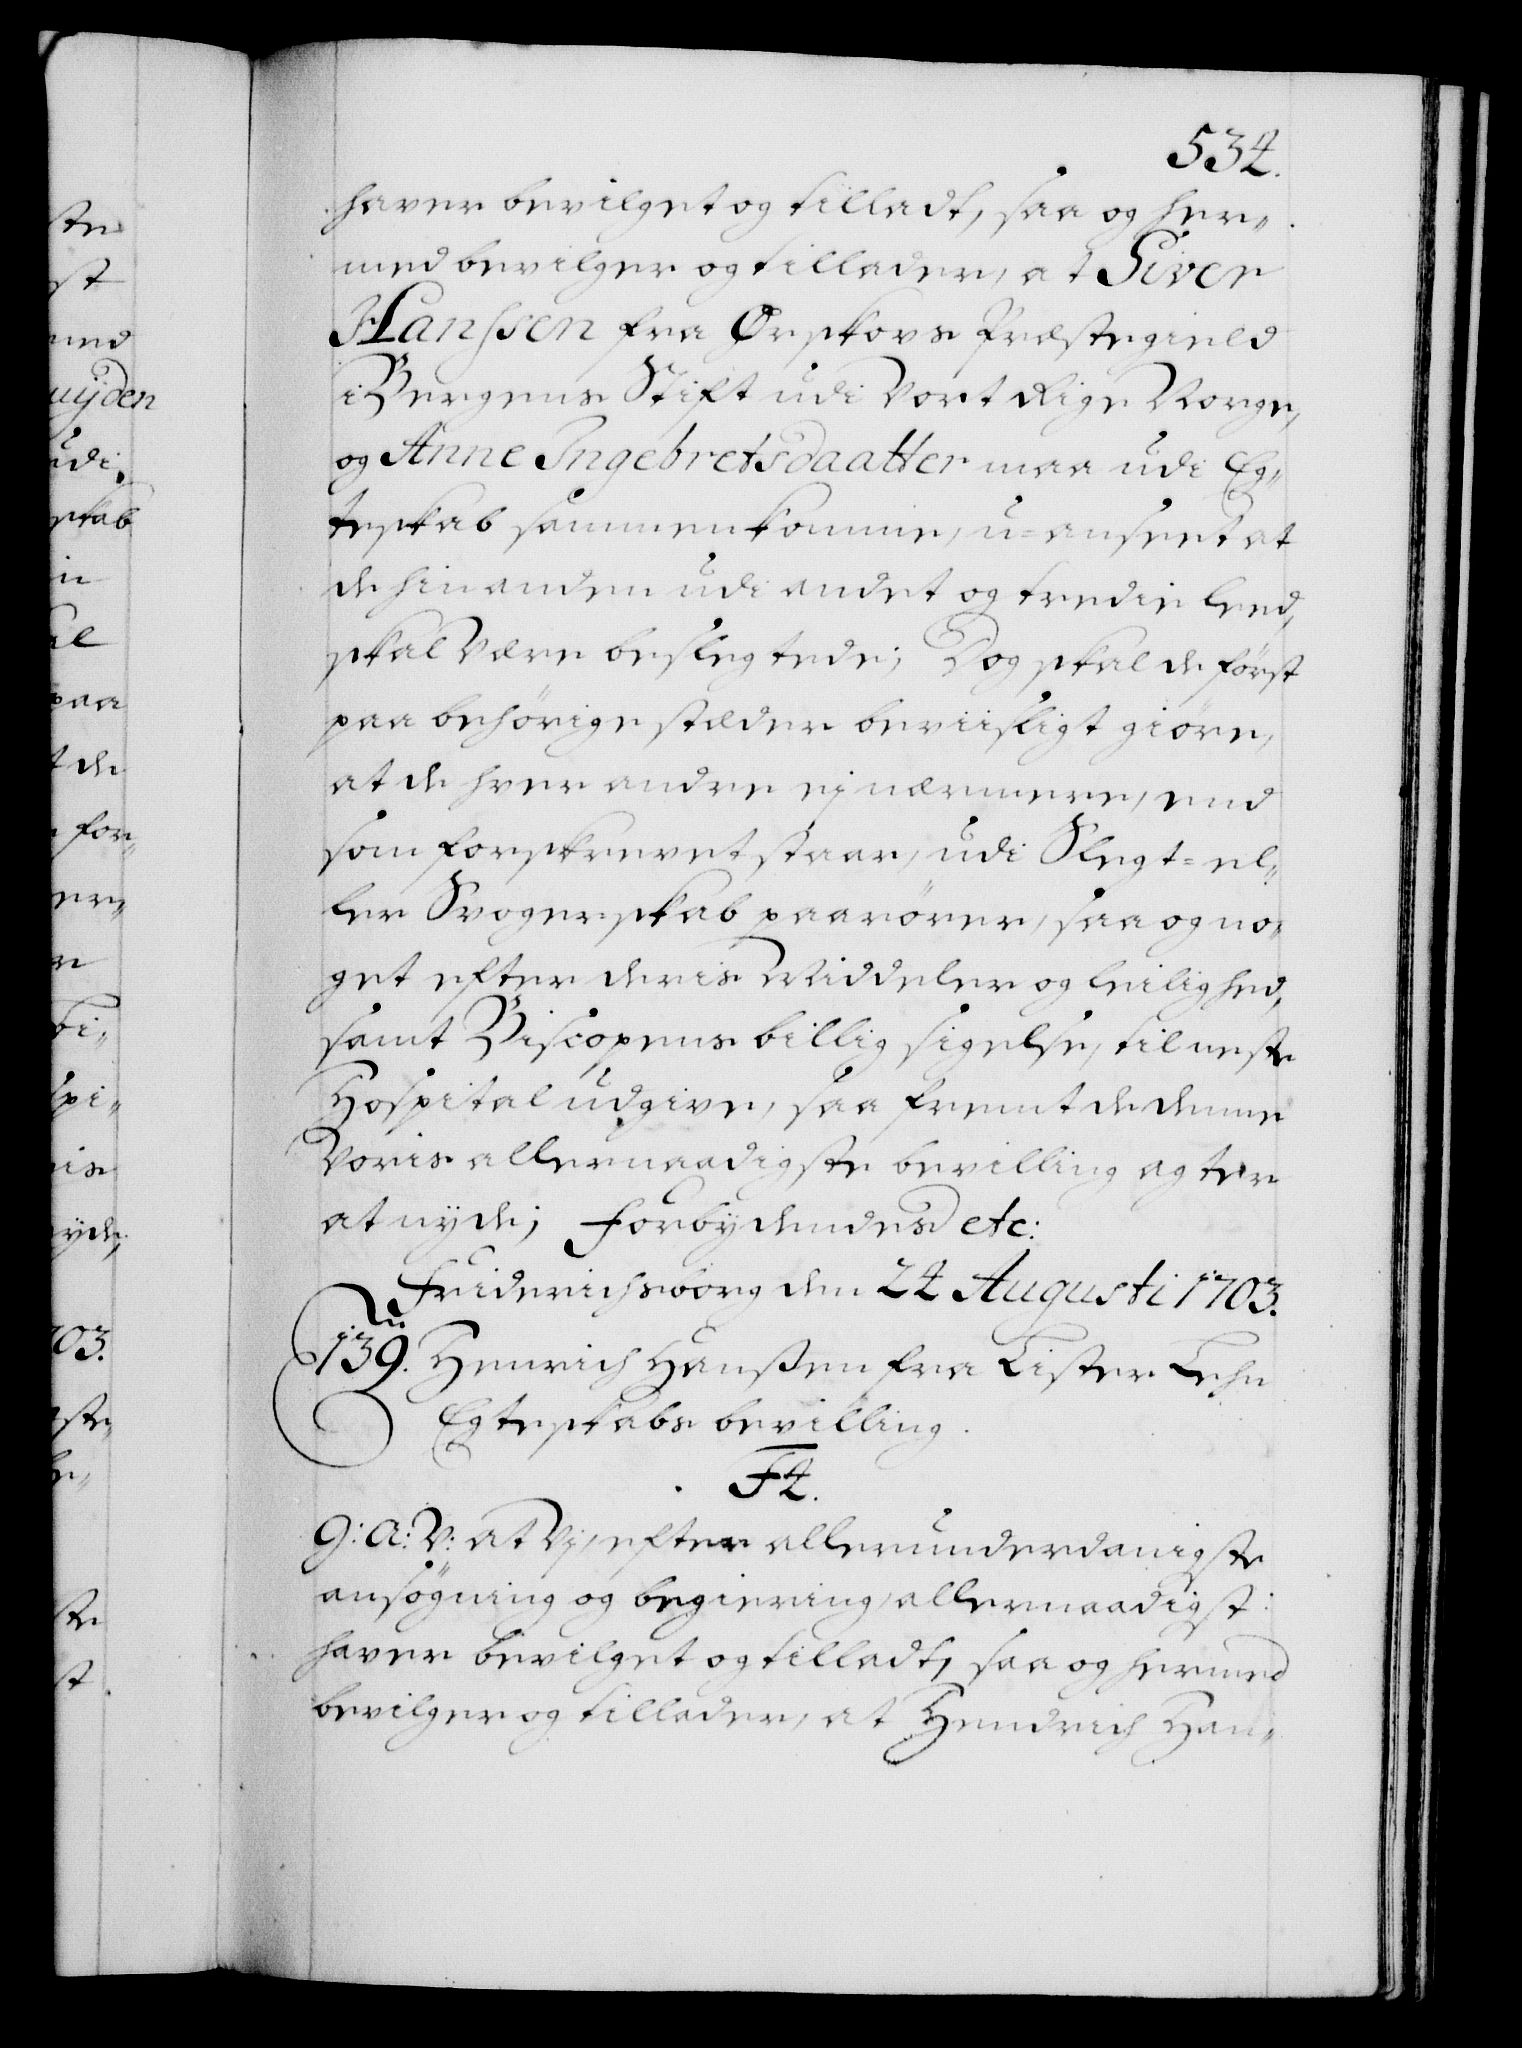 534.
haver bevilget og tilladt, saa og her-
med bevilger og tillader, at Siver
Hanssen fra Ørskovs Præstegield
i Bergens Stift udi Vort Rige Norge,
og Anne Ingebretsdaatter maa udi Eg-
teskab sammenkomme, u=anseet at
de hinanden udi andet og tredie Leed,
skal være beslegtede; Dog skal de först
paa behörige stæder beviisligt giöre,
at de hverandre ej nærmere, end
som forskrevet staar, udi Slegt= el-
ler Svogerskab paarörer, saa og no-
get efter deris Middeler og leilighed,
samt Biscopens billig sigelse, til neste
Hospital udgive, saa fremt de denne
Voris allernaadigste bevilling agter
at nyde; Forbydendes etc:
Friderichsborg den 24 Augusti 1703.
139. Henrich Hanssen fra Lister Lehn
Egteskabs bevilling.
F4.
G: A: V: at Vj, efter allerunderdanigste
ansögning og begiering, allernaadigst
haver bevilget og tilladt, saa og hermed
bevilger og tillader, at Hendrich Han-
ste
st
med
uijden
udi
skab
in
al
paa
t de
for-
er-
r
bi-
spi-
ris
nyde,
703.
ste
be-
ste
st